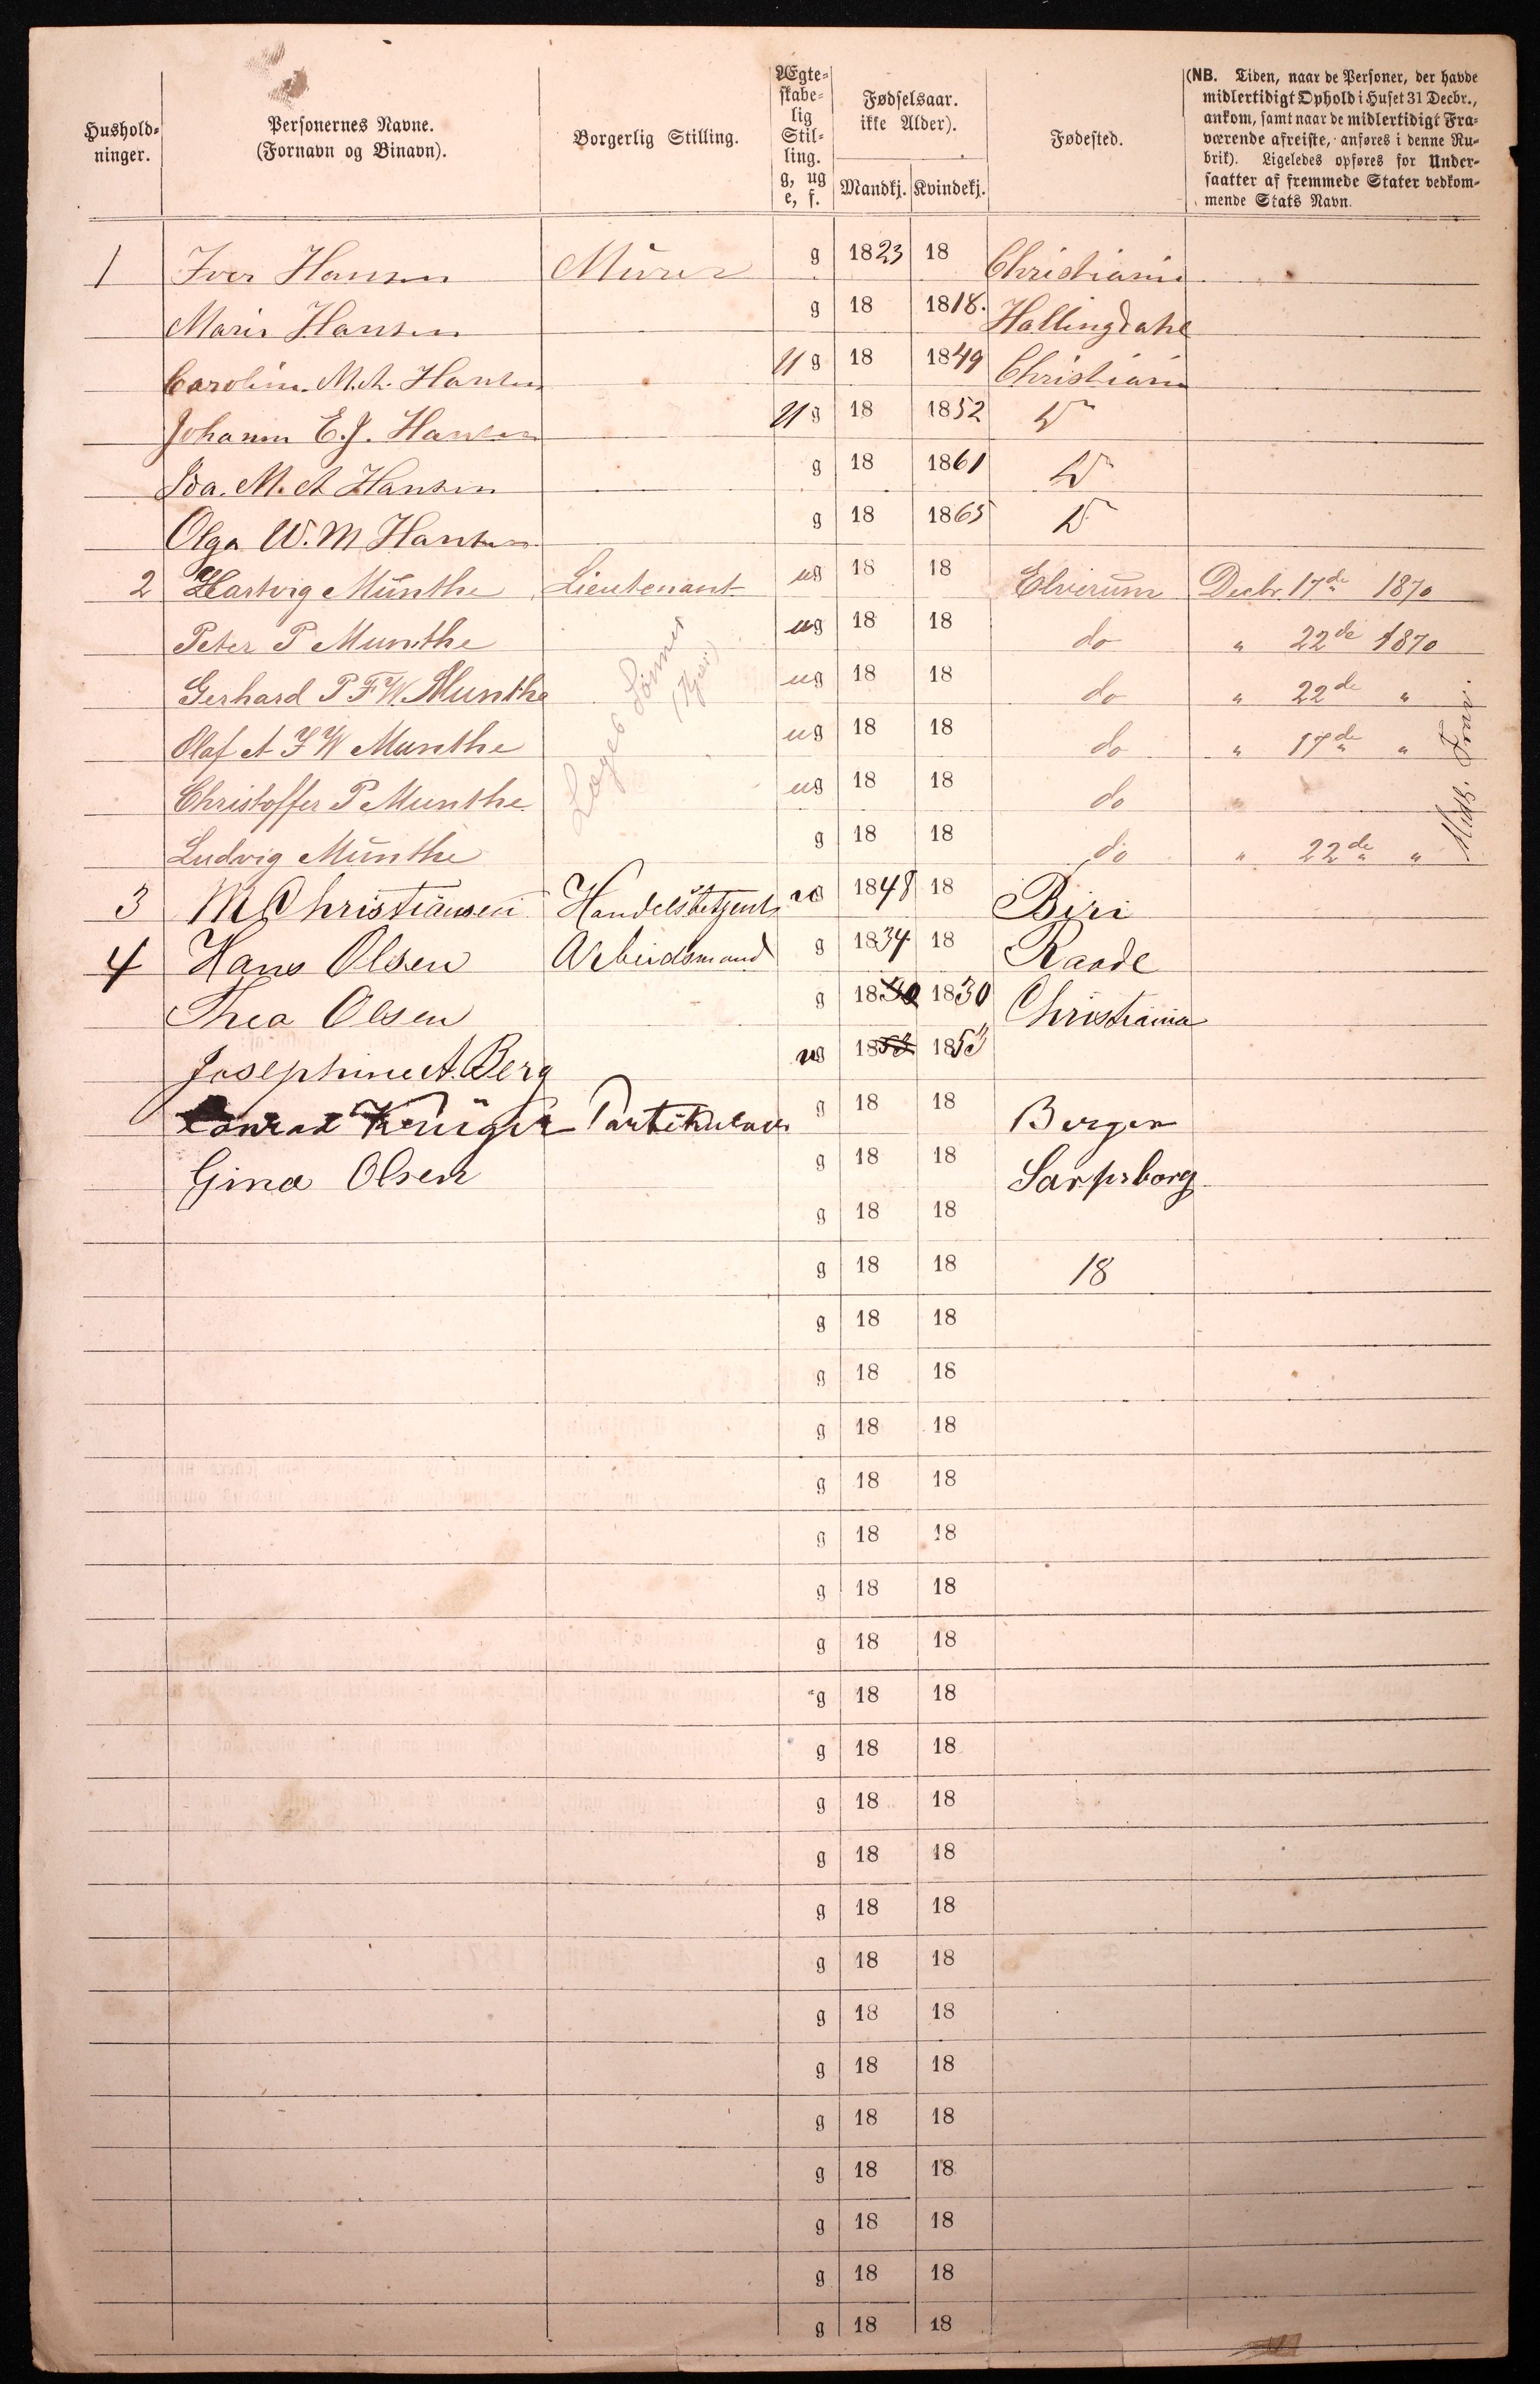 Hushold-
ninger.
Personernes Navne.
(Fornavn og Binavn).
Borgerlig Stilling.
Ægte-
skabe-
lig
Stil-
ling.
g, ug
e, f.
Fødselsaar.
ikke Alder).
Mandkj. Kvindekj.
Fødested.
(NB. Tiden, naar de Personer, der havde
midlertidigt Ophold i Huset 31 Decbr.,
ankom, samt naar de midlertidigt Fra-
værende afreiste, anføres i denne Ru-
brik). Ligeledes opføres for Under-
saatter af fremmede Stater vedkom-
mende Stats Navn.
1 Iver Hansen Murer g 1823 18 Christiania
Marie Hansen g 18 1818. Hallingdahl
Caroline M.A. Hansen Ug 18 1849 Christiania
Johanne E.J. Hansen Ug 18 1852 Do
Ida. M. A Hansen g 18 1861 Do
Olga W. M Hansen g 18 1865 Do
2 Hartvig Münthe Lieutenant ug 18 18 Elverum Decbr. 17de 1870
Peter P Munthe ug 18 18 do " 22de 1870
Gerhard P F W Munthe ug 18 18 do " 22de "
Olaf A F W Munthe ug 18 18 do " 17de "
Christoffer P Munthe ug 18 18 do "
Ludvig Münthe g 18 18 do " 22de "
Læges Sønner
Midl. Frav.
3 M Christiansen ug 1848 18 Biri
4 Hans Olsen Arbeidsmand g 1834 18 Raade
Thea Olsen g 1830 1830 Christiania
Josephine A. Berg ug 1853 1853
Conrad Krüger Partikulær g 18 18 Bergen
Gina Olsen g 18 18 Sarpsborg
g 18 18
g 18 18 18
g 18 18
g 18 18
g 18 18
g 18 18
g 18 18
g 18 18
g 18 18
g 18 18
g 18 18
g 18 18
g 18 18
g 18 18
g 18 18
g 18 18
g 18 18
g 18 18
g 18 18
g 18 18
g 18 18
g 18 18